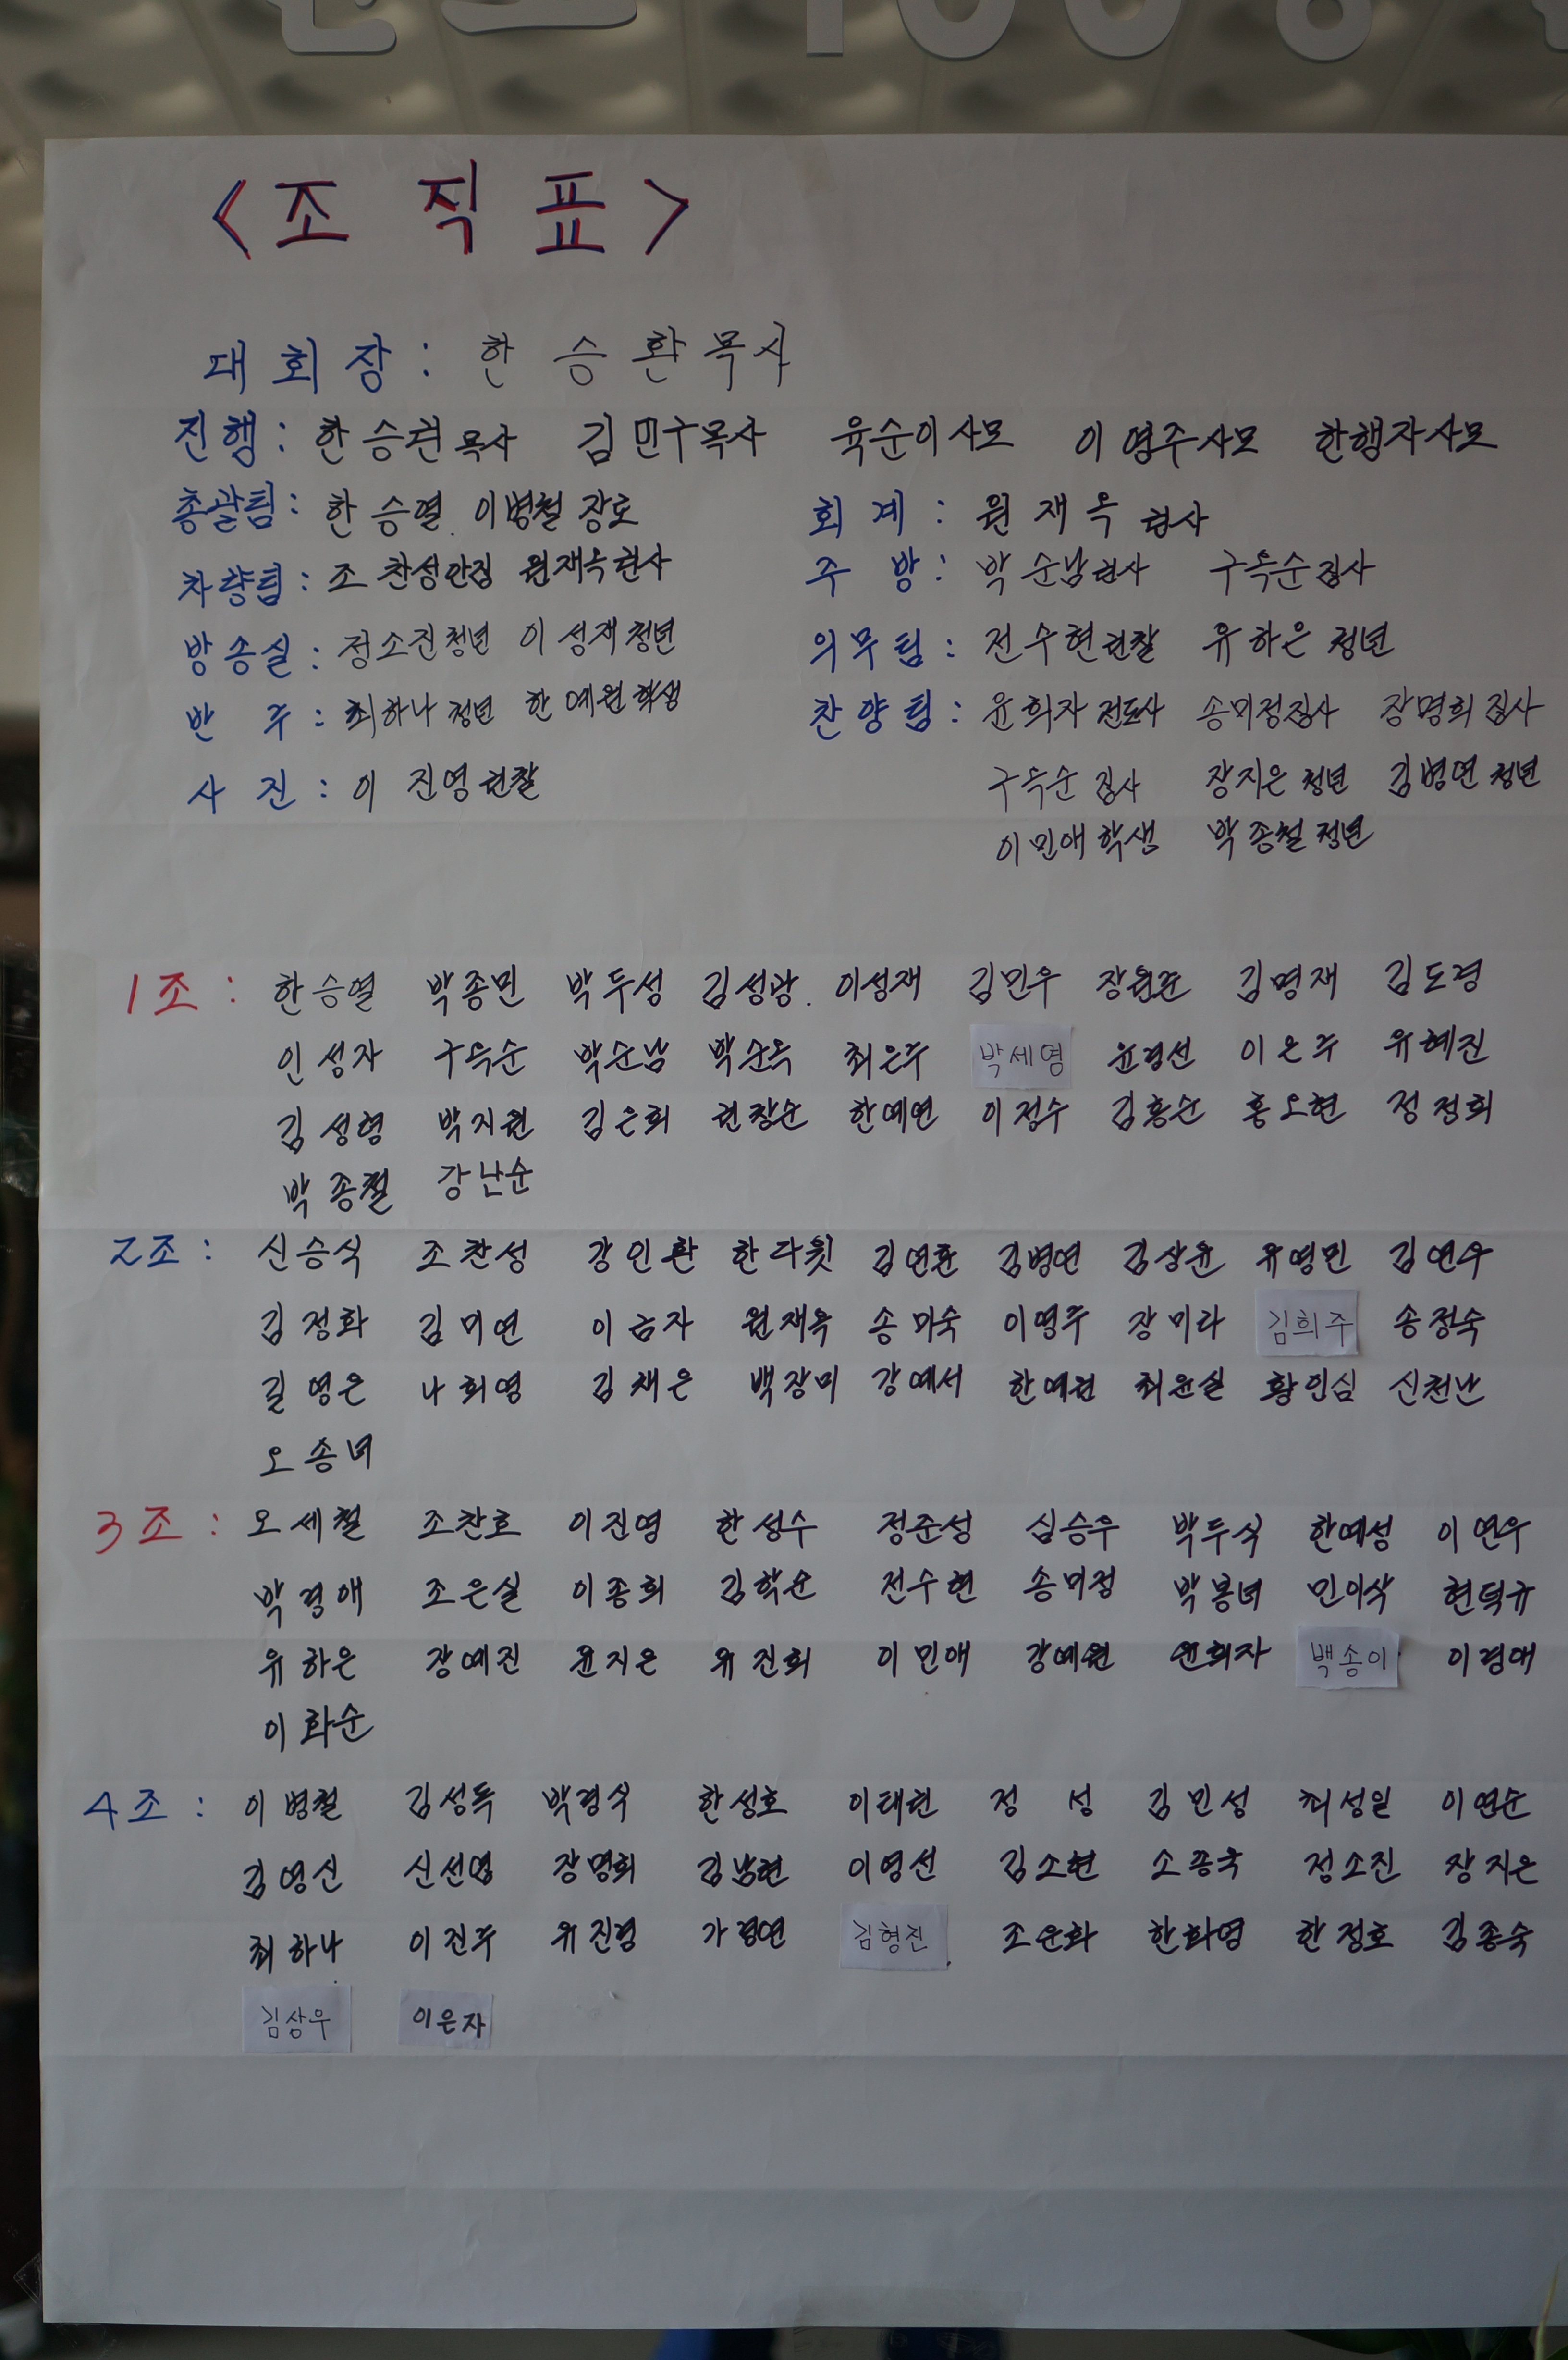 <조 직 표>
대 회 장 : 한 승 환 목사
진행 : 한승권 목사 김민구목사 육순이사모 이영주사모 한행자사모
총괄팀 : 한승열. 이병철 장로 회 계 : 원재옥 권사
차량팀 : 조찬성안집 원재옥권사 주 방 : 박순남권사 구옥순집사
방송실 : 정소진청년 이성재청년 의무팀 : 전수현권찰 유하은 청년
반 주 : 최하나 청년 한예원 학생 찬양팀 : 윤희자 전도사 송미정집사 장명희 집사
사 진 : 이진영권찰 구옥순 집사 장지은 청년 김병연 청년
이민애 학생 박종철 청년
1조 : 한승열 박종민 박두성 김성광. 이성재 김민우 김명재 김도경
인성자 구옥순 박순남 박순옥 최은주 박세영 윤경선 이은주 유혜진
김성형 박지원 김은희 권창순 한예연 이정수 김흥순 홍오현 정정희
박종철 강난순
2조 : 신승식 조찬성 강인환 한다윗 김연훈 김병연 김상윤 유영민 김연우
김정화 김미연 이금자 원재옥 송미숙 이영주 장미라 김희주 송정숙
길영은 나희영 김채은 백장미 강예서 한예원 최윤실 황인심 신천난
오송녀
3조 : 오세철 조찬호 이진영 한성수 정준성 심승우 박두식 한예성 이연우
박경애 조은실 이종희 김학순 전수현 송미정 박봉녀 민이삭 현덕규
유하은 장예진 윤지은 유진희 이민애 강예원 윤희자 백송이 이경애
이화순
4조 : 이병철 김성독 박경식 한성호 이태현 정 성 김민성 최성일 이연순
김영신 신선영 장명희 김남현 이영선 김소현 소종국 정소진 장지은
최하나 이진주 유진경 가경연 김형진 조순화 한화영 한정호 김종숙
김상우 이은자